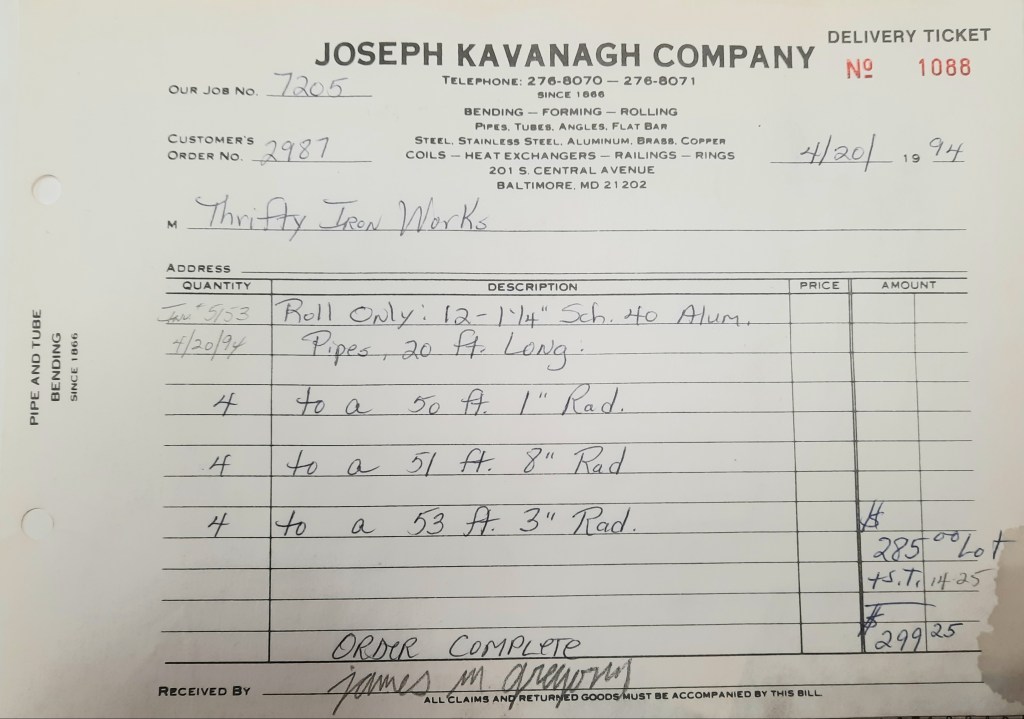 DELIVERY TICKET
JOSEPH KAVANAGH COMPANY
Nº 1088
OUR JOB NO. 7205
TELEPHONE: 276-8070 — 276-8071
SINCE 1866
BENDING — FORMING — ROLLING
PIPES, TUBES, ANGLES, FLAT BAR
CUSTOMER'S ORDER NO. 2987
STEEL, STAINLESS STEEL, ALUMINUM, BRASS, COPPER
COILS — HEAT EXCHANGERS — RAILINGS — RINGS
4/20/ 19 94
201 S. CENTRAL AVENUE
BALTIMORE, MD 21202
M Thrifty Iron Works
ADDRESS
QUANTITY DESCRIPTION PRICE AMOUNT
5153 Roll Only: 12 - 1 1/4" Sch. 40 Alum.
4/20/94 Pipes, 20 ft. Long.
4 to a 50 ft. 1" Rad.
4 to a 51 ft. 8" Rad
4 to a 53 ft. 3" Rad.
$ 285 00 Lot
+S.T. 14 25
$ 299 25
ORDER COMPLETE
RECEIVED BY james m gregory
ALL CLAIMS AND RETURNED GOODS MUST BE ACCOMPANIED BY THIS BILL
PIPE AND TUBE
BENDING
SINCE 1866